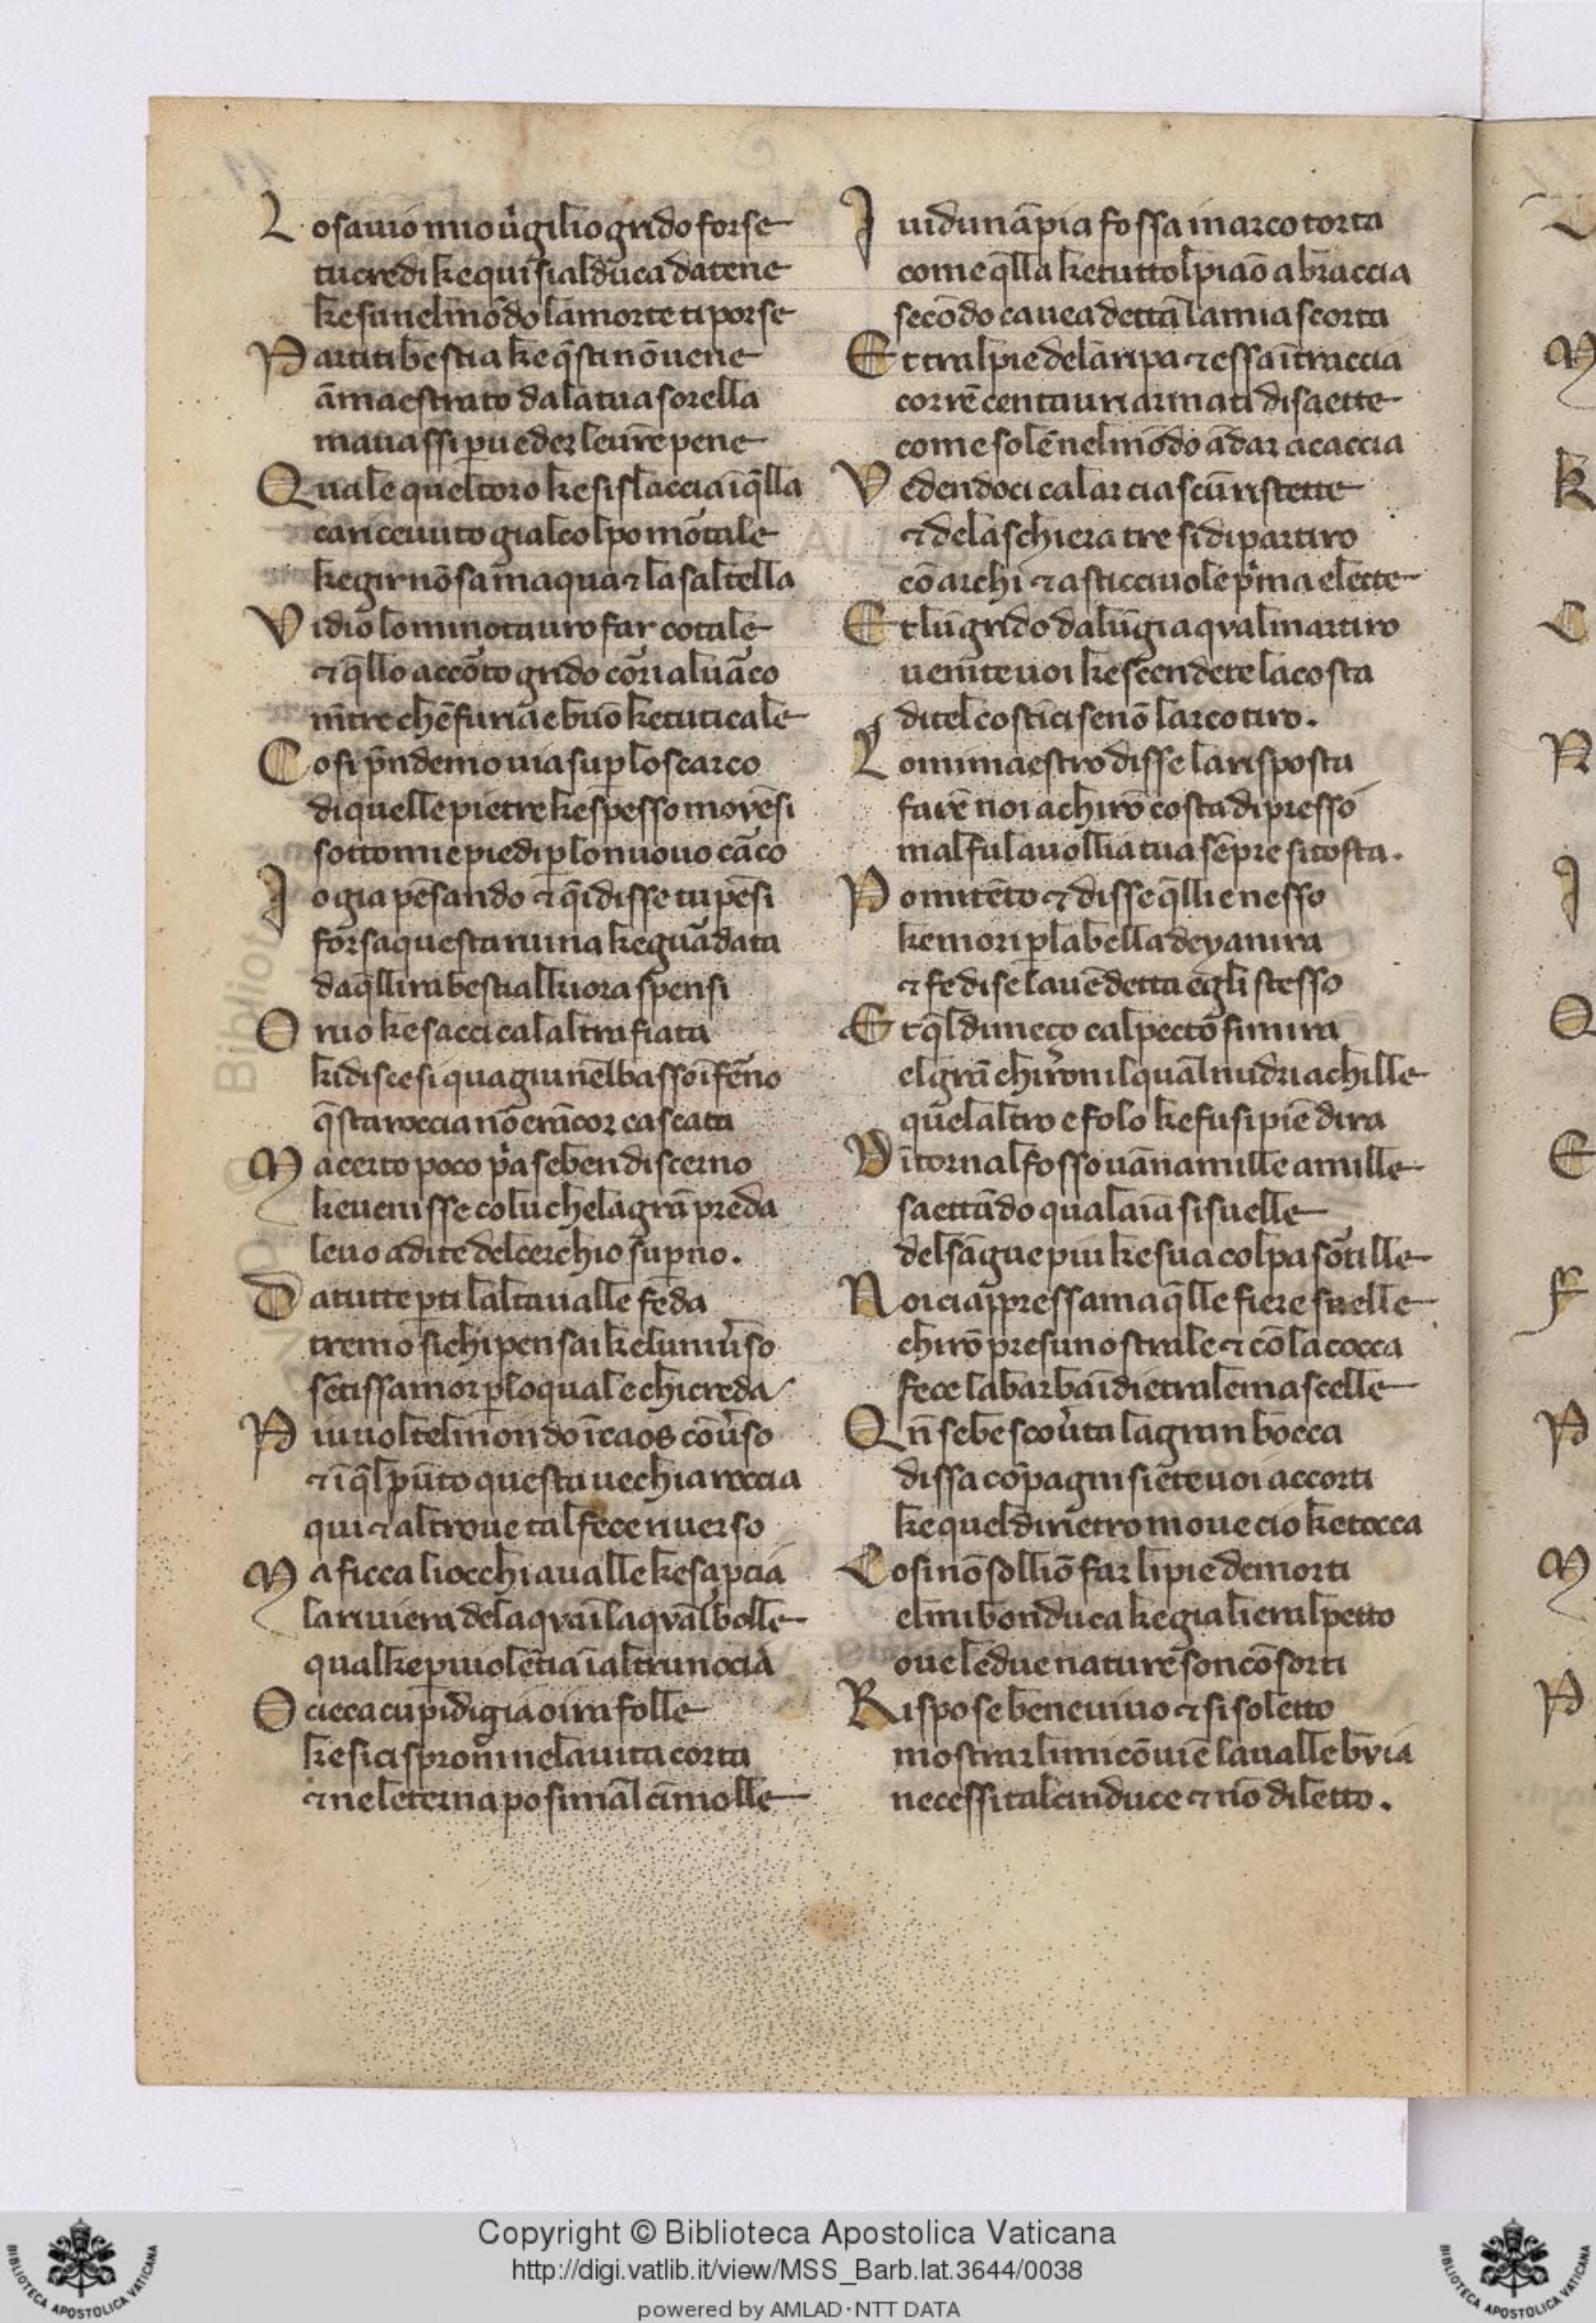 Lo sauio mio ũgilio grido forse
tu credi ke qui sial duca datene
ke su nel mõdo la morte ti porse
Partiti bestia ke q̃sti nõ uene
ãmaestrato dala tua sorella
ma uassi p̱ ueder le ur̃e pene
Quale quel toro ke si slaccia ĩ q̃lla
ca riceuuto gial colpo mõtale
ke gir nõ sa ma qua ⁊ la saltella
Vidio lo minotauro far cotale
⁊ q̃llo accõto grido cõri al uãco
nĩtre chẽ furia e buõ ke tu ti cale
Cosi p̃ndemo uia su p̱ lo scarco
di quelle pietre ke spesso movẽsi
sotto mie piedi p̱ lo nuouo cãco
Io gia pẽsando ⁊ q̃i disse tu pẽsi
forsa questa ruina ke guãdata
da q̃llira bestial kiora spensi
Or uo ke sacci ca laltra fiata
ki discesi qua giu nel basso ĩfẽno
q̃sta roccia nõ erãcor cascata
Ma certo poco p̃a se ben discerno
ke uenisse colui che la grã preda
leuo a dite del cerchio sup̱no.
Da tutte p̱ti lalta ualle feda
tremo si chi pensai ke luniũso
sẽtissamor p̱ lo quale chi creda
Piu uolte lmondo ĩ caos cõũso
⁊ ĩ q̃l pũto questa uechia roccia
qui ⁊ altroue tal fece riuerso
Ma ficca liocchi a ualle ke sap̱cia
la riuiera dela qvaĩ la qval bolle
qual ke p̱ uiolẽtia ĩ altrui nocia
O cieca cupidigia o ira folle
ke si ci sproni nela uita corta
⁊ neleterna poi si mal cimolle
I uidunãpia fossa in arco torta
come q̃lla ke tuttol piaõ abraccia
secõdo cauea detta la mia scorta
Et tral pie dela ripa ⁊ essa ĩ traccia
corrẽ centauri armati di saette
come solẽ nel mõdo ãdar a caccia
Vedendoci calar ciascũ ristette
⁊ dela schiera tre si dipartiro
cõ archi ⁊ asticciuole p̃ma elette
Et lũ grido da lũgi a qval martiro
uenite uoi ke scendete la costa
ditel costici se nõ larco tiro.
Lo mi maestro disse la risposta
farẽ noi a chirõ costa di presso
mal fu la uollia tua sẽpre si tosta.
Poi mi tẽto ⁊ disse q̃lli e nesso
ke mori p̱ la bella deyanira
⁊ fe di se la uẽdetta egli stesso
Et q̃l di meço cal pecto si mira
el grã chiron il qual nudri achille
quelaltro e folo ke fu si piẽ dira
Dĩtornal fosso uãn a mille a mille
saettãdo qualaĩa si suelle
del sãgue piu ke sua colpa sortille
Noi ciappressam a q̃lle fiere snelle
chirõ presuno strale ⁊ cõ la cocca
fece la barba ĩdietra le mascelle
Qñ sebe scoũta la gran bocca
dissa cõpagni siete uoi accorti
ke quel dirietro moue cio ke tocca
Cosi nõ sollion far li pie de morti
el mi bon duca ke gia liera lpetto
oue le due nature son cõsorti
Rispose ben e uiuo ⁊ si soletto
mostrar li mi cõuiẽ la ualle bvia
necessita lcinduce ⁊ nõ diletto.
Copyright © Biblioteca Apostolica Vaticana
http://digi.vatlib.it/view/MSS_Barb.lat.3644/0038
powered by AMLAD·NTT DATA